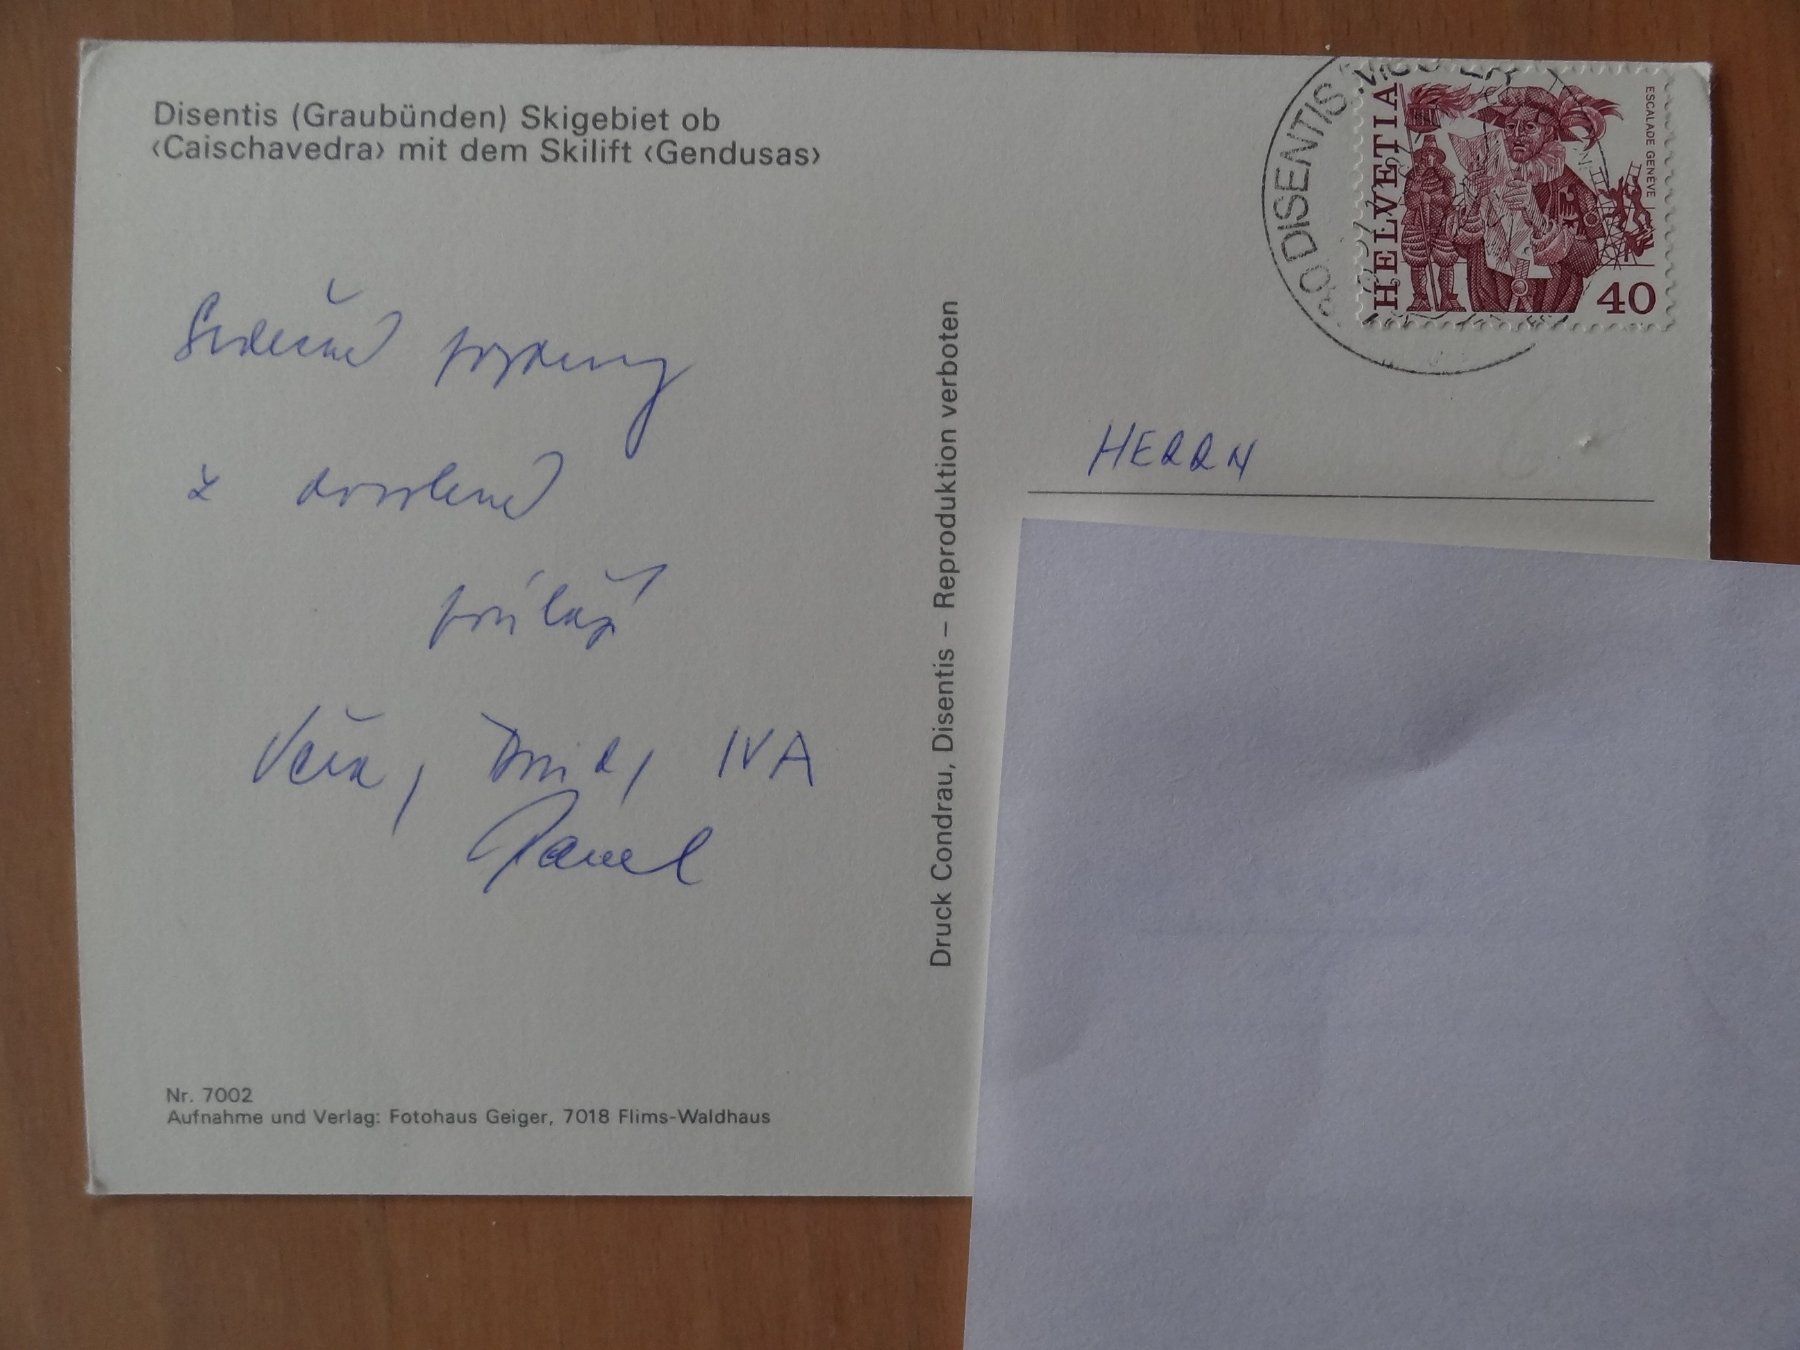 Disentis (Graubünden) Skigebiet ob
‹Caischavedra› mit dem Skilift ‹Gendusas›
Srdečné pozdravy
z dovolené
posílají
Věra, IVA
Pavel
Nr. 7002
Aufnahme und Verlag: Fotohaus Geiger, 7018 Flims-Waldhaus
Druck Condrau, Disentis – Reproduktion verboten
DISENTIS
HELVETIA
ESCALADE GENÈVE
40
HERRN